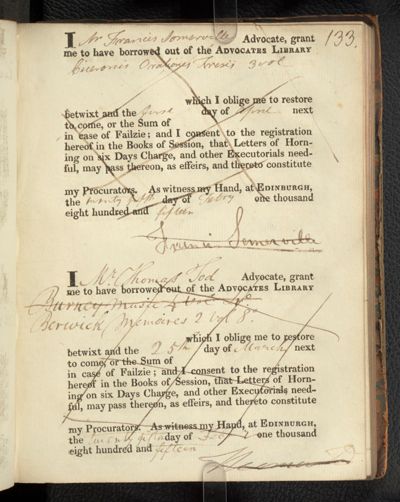 133.
I Mr Francis Somerville Advocate, grant
me to have borrowed out of the ADVOCATES LIBRARY
Ciceronis Orationes 3 vol
which I oblige me to restore
betwixt and the first day of April next
to come, or the Sum of
in case of Failzie; and I consent to the registration
hereof in the Books of Session, that Letters of Horn-
ing on six Days Charge, and other Executorials need-
ful, may pass thereon, as effeirs, and thereto constitute
my Procurators. As witness my Hand, at EDINBURGH,
the twenty fifth day of Febry one thousand
eight hundred and fifteen
Francis Somerville
I Mr Thomas Tod Advocate, grant
me to have borrowed out of the ADVOCATES LIBRARY
Burney Music 4 vol 4to
Berwick Memoires 2 vol 8o
which I oblige me to restore
betwixt and the 25th day of March next
to come, or the Sum of
in case of Failzie; and I consent to the registration
hereof in the Books of Session, that Letters of Horn-
ing on six Days Charge, and other Executorials need-
ful, may pass thereon, as effeirs, and thereto constitute
my Procurators. As witness my Hand, at EDINBURGH,
the twenty fifth day of one thousand
eight hundred and fifteen